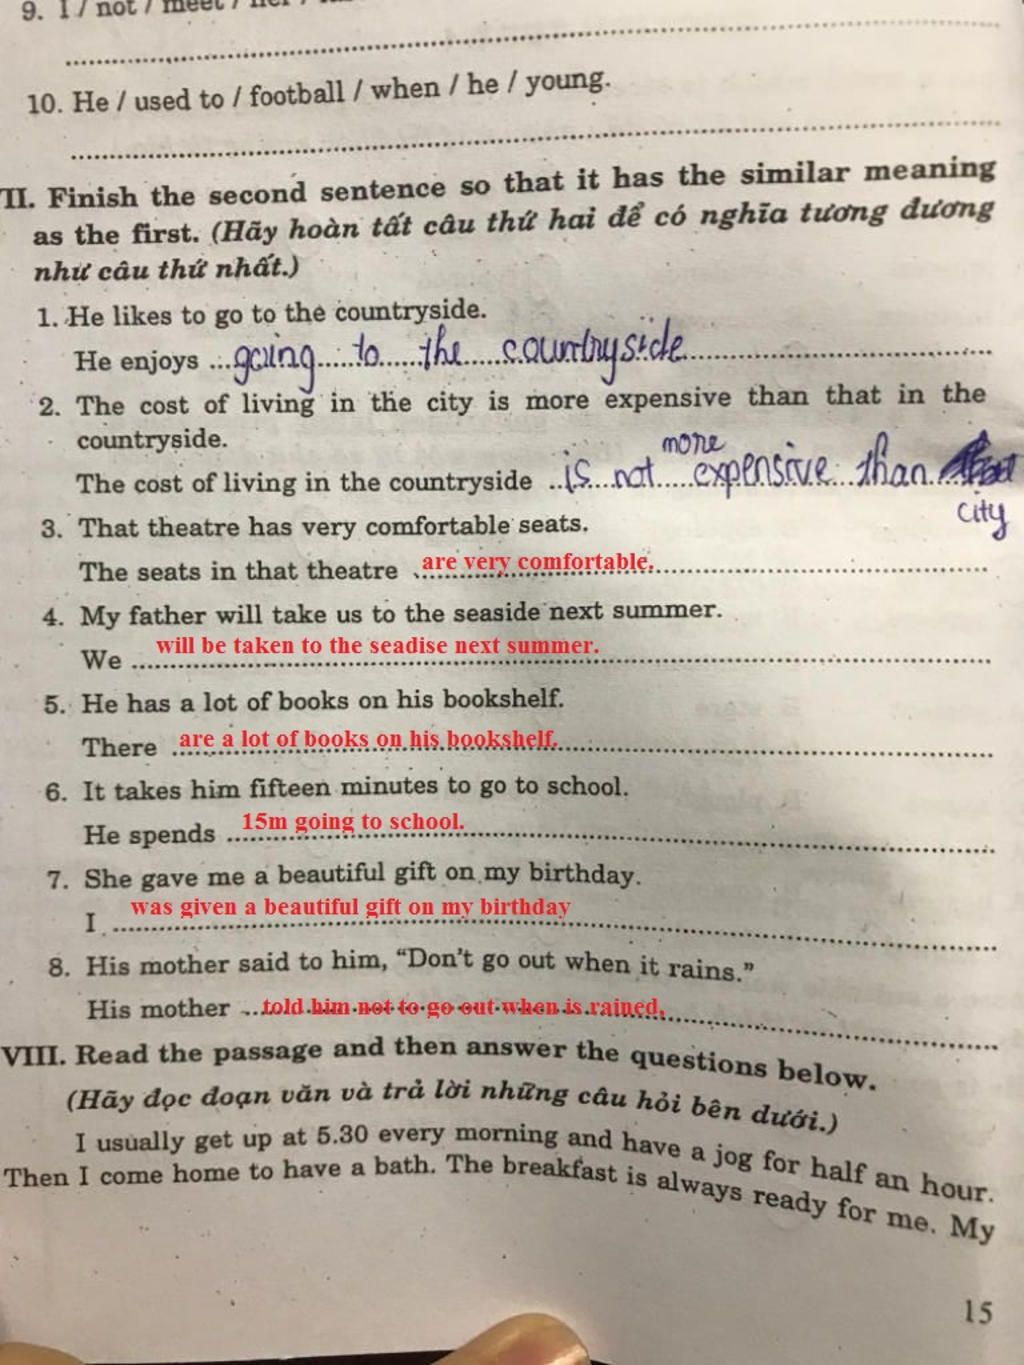 9. I / not / meet / her /
10. He / used to / football / when / he / young.
VII. Finish the second sentence so that it has the similar meaning
as the first. (Hãy hoàn tất câu thứ hai để có nghĩa tương đương
như câu thứ nhất.)
1. He likes to go to the countryside.
He enjoys ... going to the countryside
2. The cost of living in the city is more expensive than that in the
countryside.
more
The cost of living in the countryside ... is not expensive than
city
3. That theatre has very comfortable seats.
The seats in that theatre are very comfortable.
4. My father will take us to the seaside next summer.
We will be taken to the seadise next summer.
5. He has a lot of books on his bookshelf.
There are a lot of books on his bookshelf.
6. It takes him fifteen minutes to go to school.
He spends 15m going to school.
7. She gave me a beautiful gift on my birthday.
I was given a beautiful gift on my birthday
8. His mother said to him, “Don’t go out when it rains.”
His mother ... told him not to go out when is rained.
VIII. Read the passage and then answer the questions below.
(Hãy đọc đoạn văn và trả lời những câu hỏi bên dưới.)
I usually get up at 5.30 every morning and have a jog for half an hour.
Then I come home to have a bath. The breakfast is always ready for me. My
15